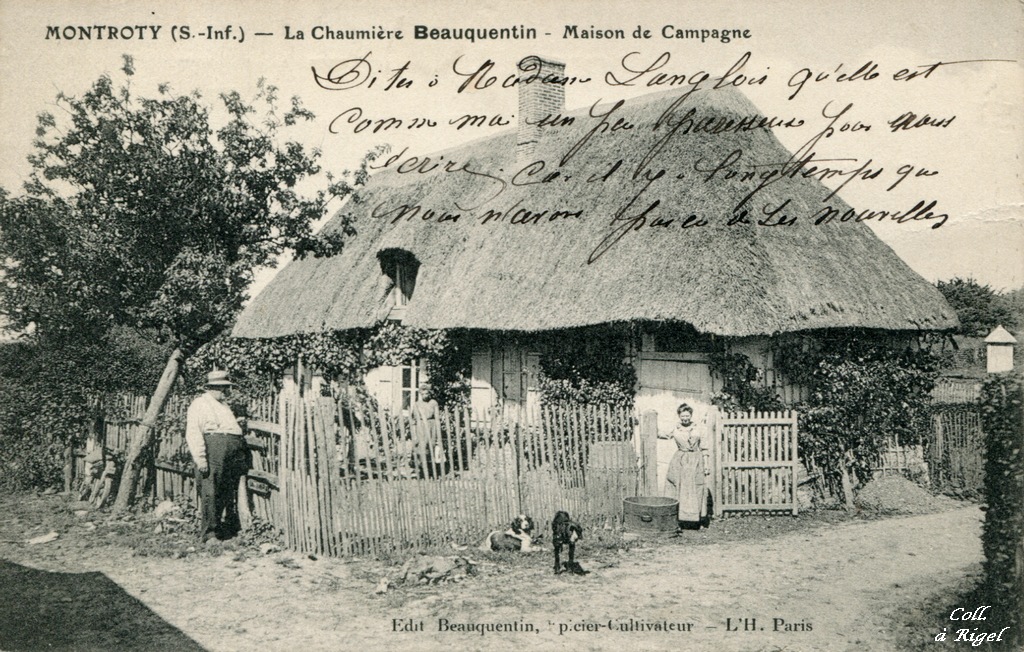 MONTROTY (S.-Inf.) — La Chaumière Beauquentin - Maison de Campagne
Dites à Madame Langlois qu'elle est
Comme moi un peu paresseuse pour nous
écrire. Car il y a longtemps que
Nous n'avons pas eu de Ses nouvelles
Edit Beauquentin, picier-Cultivateur — L'H. Paris
Coll.
à Rigel